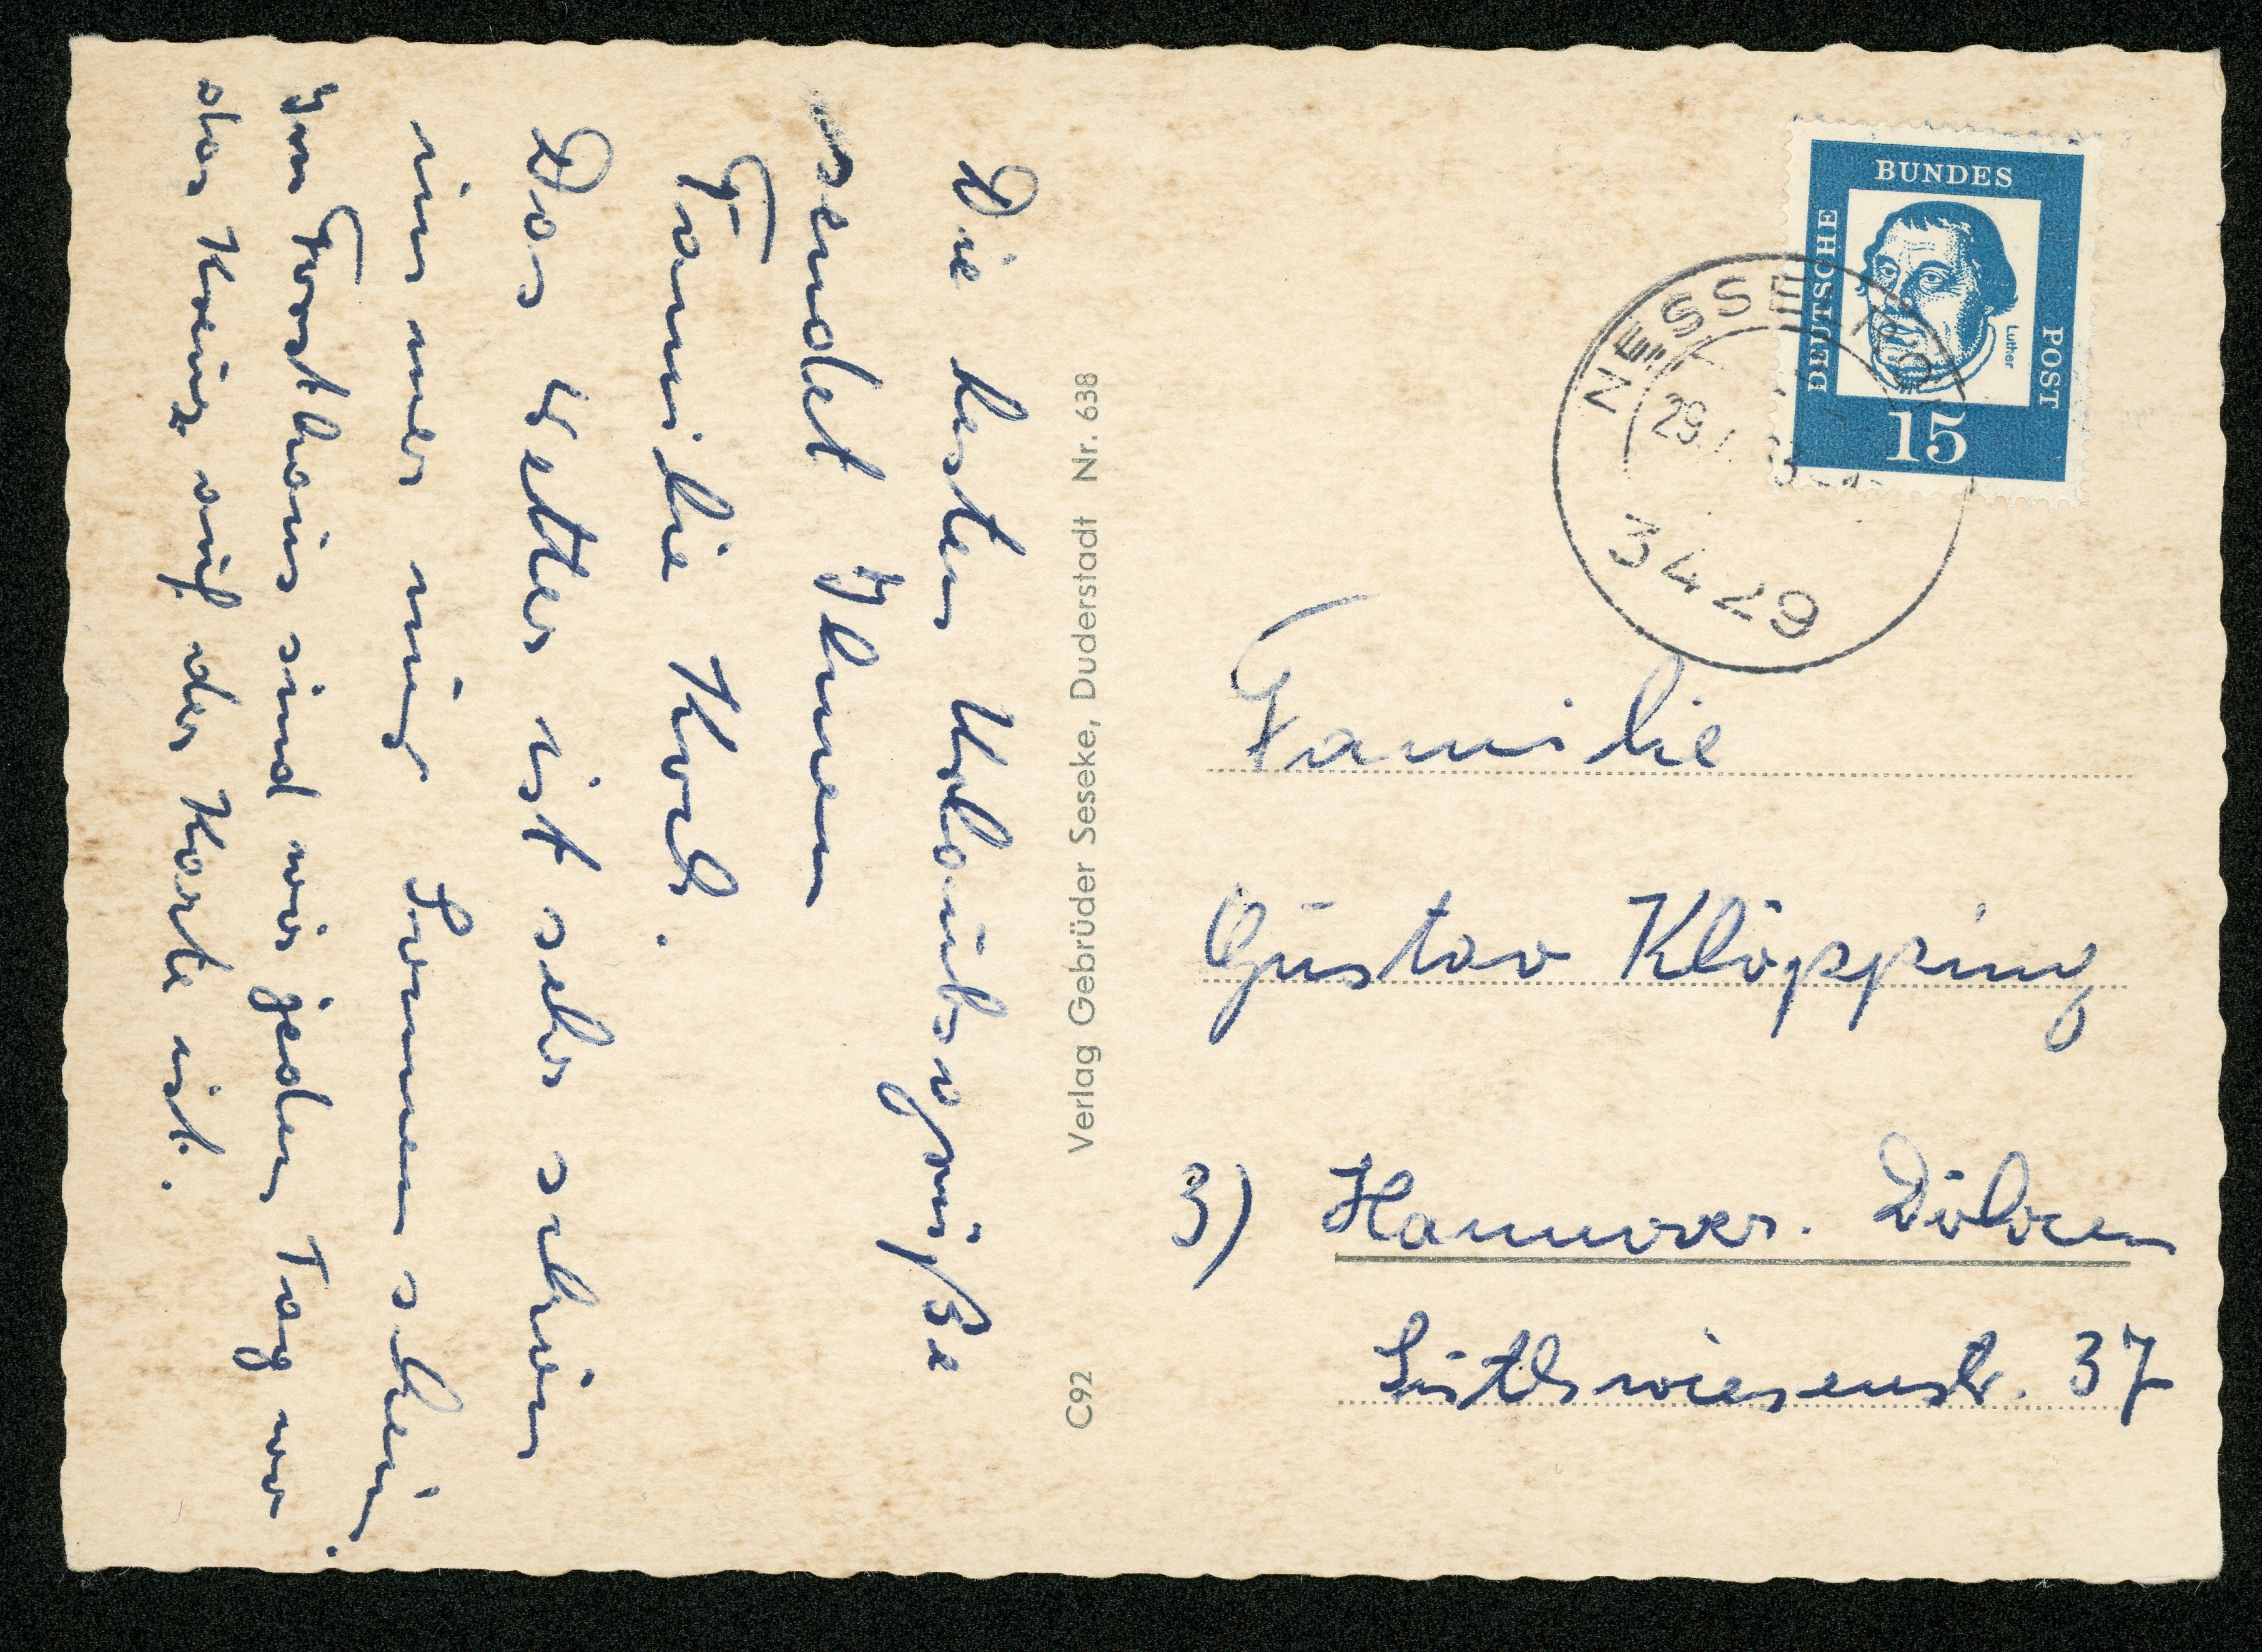 Die besten Urlaubsgrüße
sendet Ihnen
Familie Koch.
Das Wetter ist sehr schön
immer nur Sonnenschein.
Im Gasthaus sind wir jeden Tag wo
das Kreuz auf der Karte ist.
Verlag Gebrüder Seseke, Duderstadt Nr. 638
C92
DEUTSCHE
BUNDES
POST
Luther
15
NESSELRÖD
29.
3429
Familie
Gustav Klöpping
3) Hannover. Döhren
37